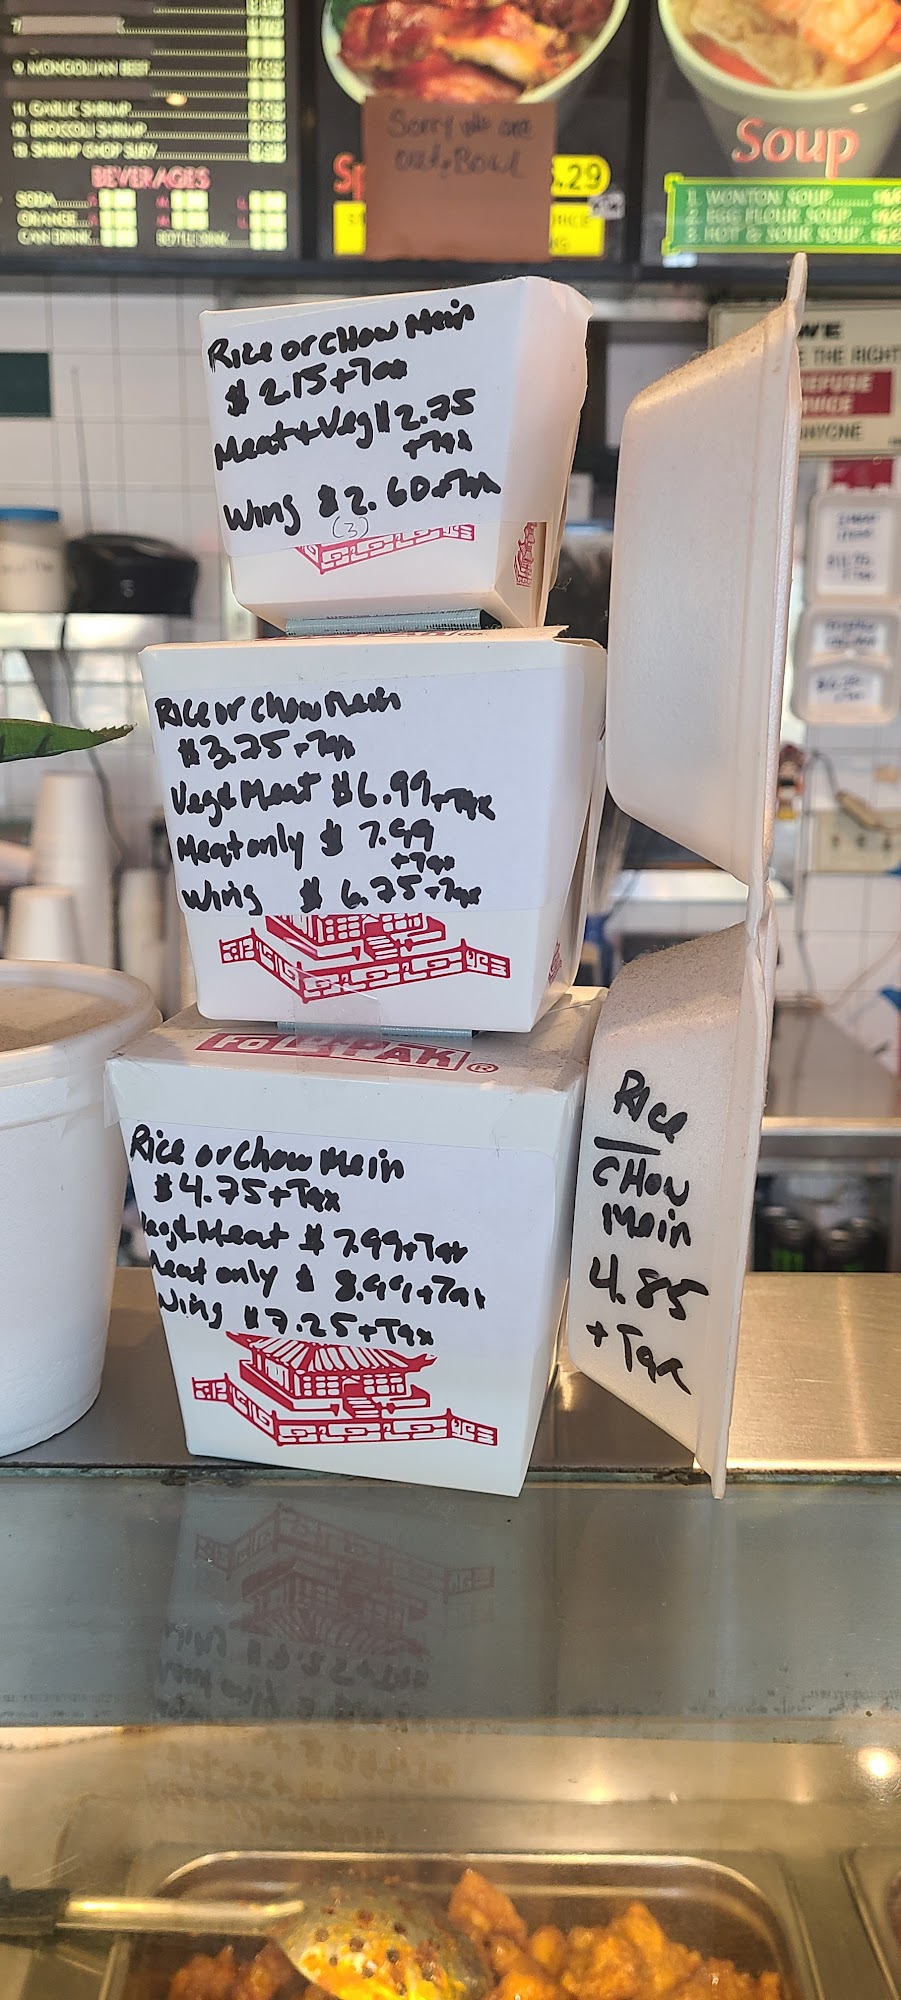 9. MONGOLIAN BEEF
11. GARLIC SHRIMP
12. BROCCOLI SHRIMP
13. SHRIMP CHOP SUEY
BEVERAGES
SODA
ORANGE
CAN DRINK
BOTTLE DRINK
Sorry we are
out Bowl
Sp
.29
Soup
1. WONTON SOUP
2. EGG FLOUR SOUP
3. HOT & SOUR SOUP
WE
THE RIGHT
REFUSE
ANYONE
Rice or CHow Mein
$ 2.15+Tax
Meat+Veg $2.75
+Tax
Wing $2.60+Tax
(3)
Rice or chow Mein
$3.75+Tax
Veg&Meat $6.99+Tax
Meat only $ 7.99
+Tax
Wing $ 6.75+Tax
FOLD-PAK®
Rice or Chow Mein
$4.75+Tax
Veg&Meat $7.99+Tax
Meat only $ 8.99+Tax
Wing $7.25+Tax
Rice
CHOW
Mein
4.85
+Tax